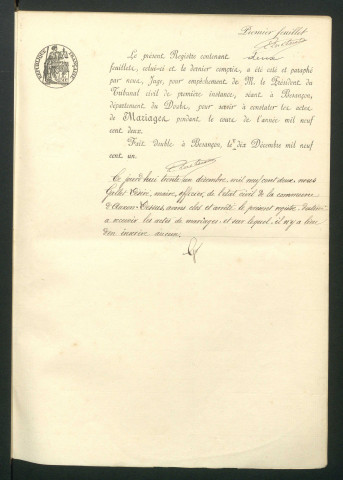 Premier feuillet
Le présent Registre contenant deux
feuillets, celui-ci et le dernier compris, a été coté et paraphé
par nous, Juge, pour empêchement de M. le Président du
Tribunal civil de première instance, séant à Besançon,
département du Doubs, pour servir à constater les actes
de Mariages pendant le cours de l'année mil neuf
cent deux.
Fait double à Besançon, le dix Décembre mil neuf
cent un.
Ce jourd'hui trente un décembre, mil neuf cent deux, nous
maire, officier de l'état civil de la commune
d'Auxon-Dessus, avons clos et arrêté le présent registre, destiné
à recevoir les actes de mariages et sur lequel il n'y a lieu
d'en inscrire aucun.
RÉPUBLIQUE FRANÇAISE